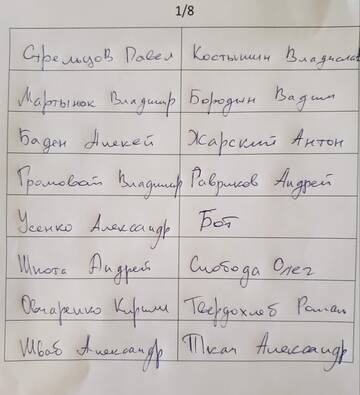 1/8
Стрельцов Павел Костышин Владислав
Мартынюк Владимир Бородын Вадим
Баден Алексей Жарский Антон
Громовой Владимир Гавриков Андрей
Усенко Александр Бот
Шиота Андрей Слобода Олег
Овчаренко Кирилл Твердохлеб Роман
Шваб Александр Ткач Александр